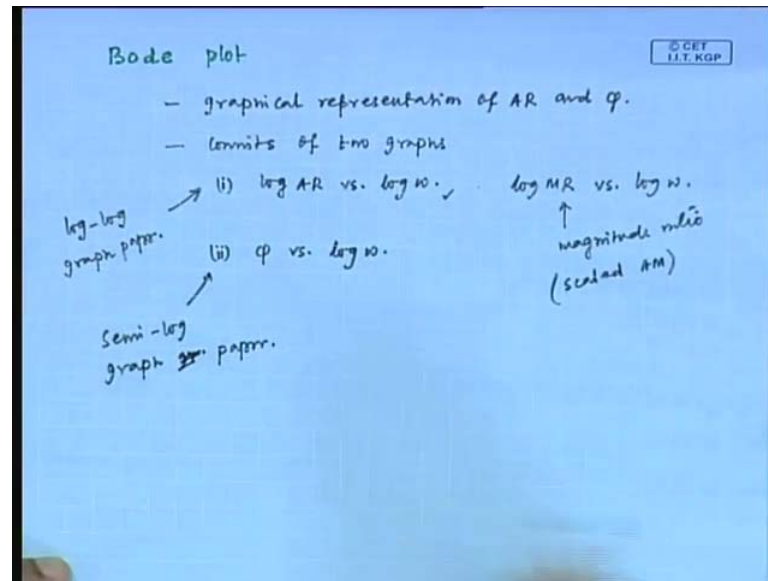 Bode plot
© CET
I.I.T. KGP
- graphical representation of AR and φ.
- consists of two graphs
(i) log AR vs. log ω. log MR vs. log ω.
log-log
graph paper.
magnitude ratio
(scaled AM)
(ii) φ vs. log ω.
semi-log
graph paper.